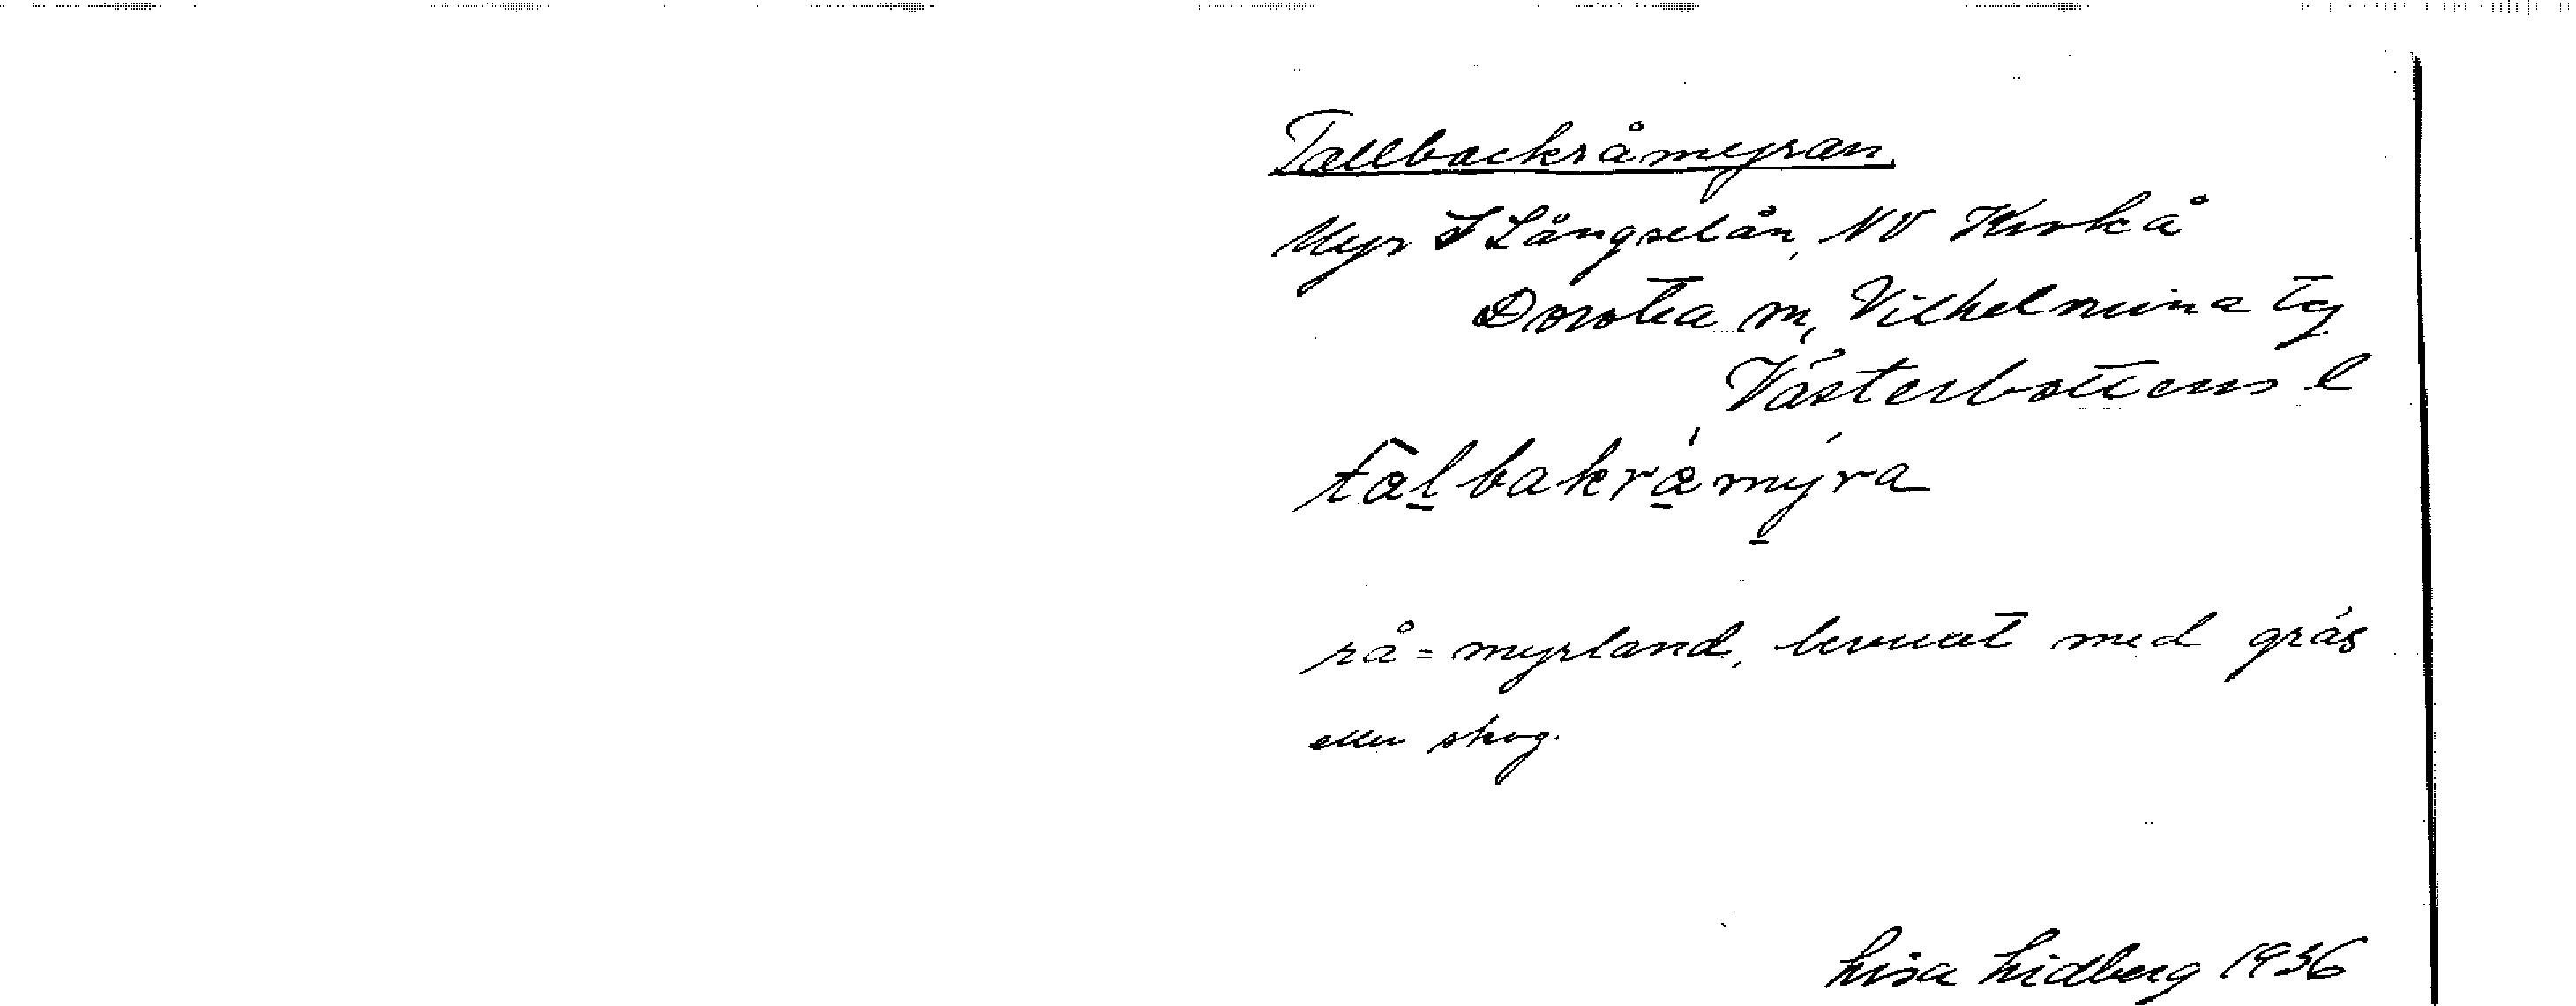 Tallbackråmyran.
Myr S Långselån, NV Kirkå
Dorotea m, Vilhelmina tg
Västerbottens l
talbakråmyra
rå = myrland, bevuxet med gräs
eller skog.
Lisa Lidberg 1936